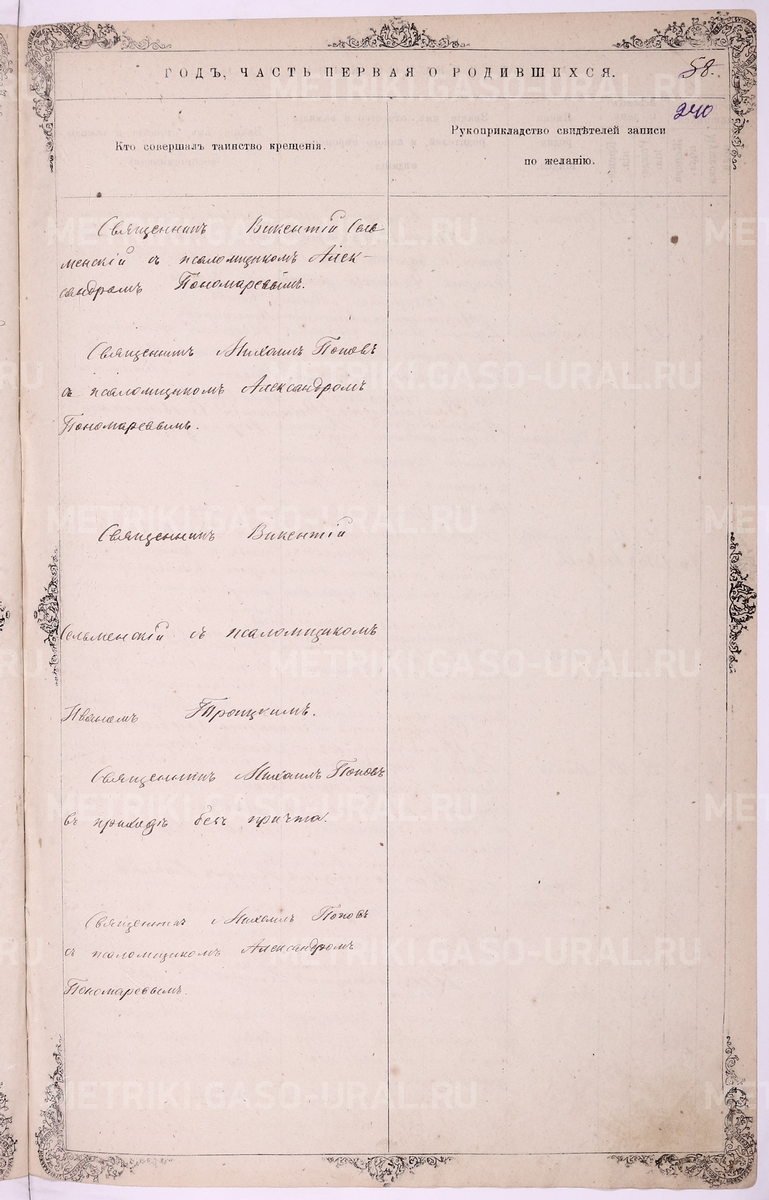 ГОДЪ, ЧАСТЬ ПЕРВАЯ О РОДИВШИХСЯ.
58.
240
Кто совершалъ таинство крещенія.
Рукоприкладство свидѣтелей записи
по желанію.
Священникъ Викентій Сель-
менскій съ псаломщикомъ Алек-
сандромъ Пономаревымъ.
Священникъ Михаилъ Поповъ
съ псаломщикомъ Александромъ
Пономаревымъ.
Священникъ Викентій
Сельменскій съ псаломщикомъ
Иваномъ Троицкимъ.
Священникъ Михаилъ Поповъ
въ приходѣ безъ причта.
Священникъ Михаилъ Поповъ
съ псаломщикомъ Александромъ
Пономаревымъ.
METRIKI.GASO-URAL.RU